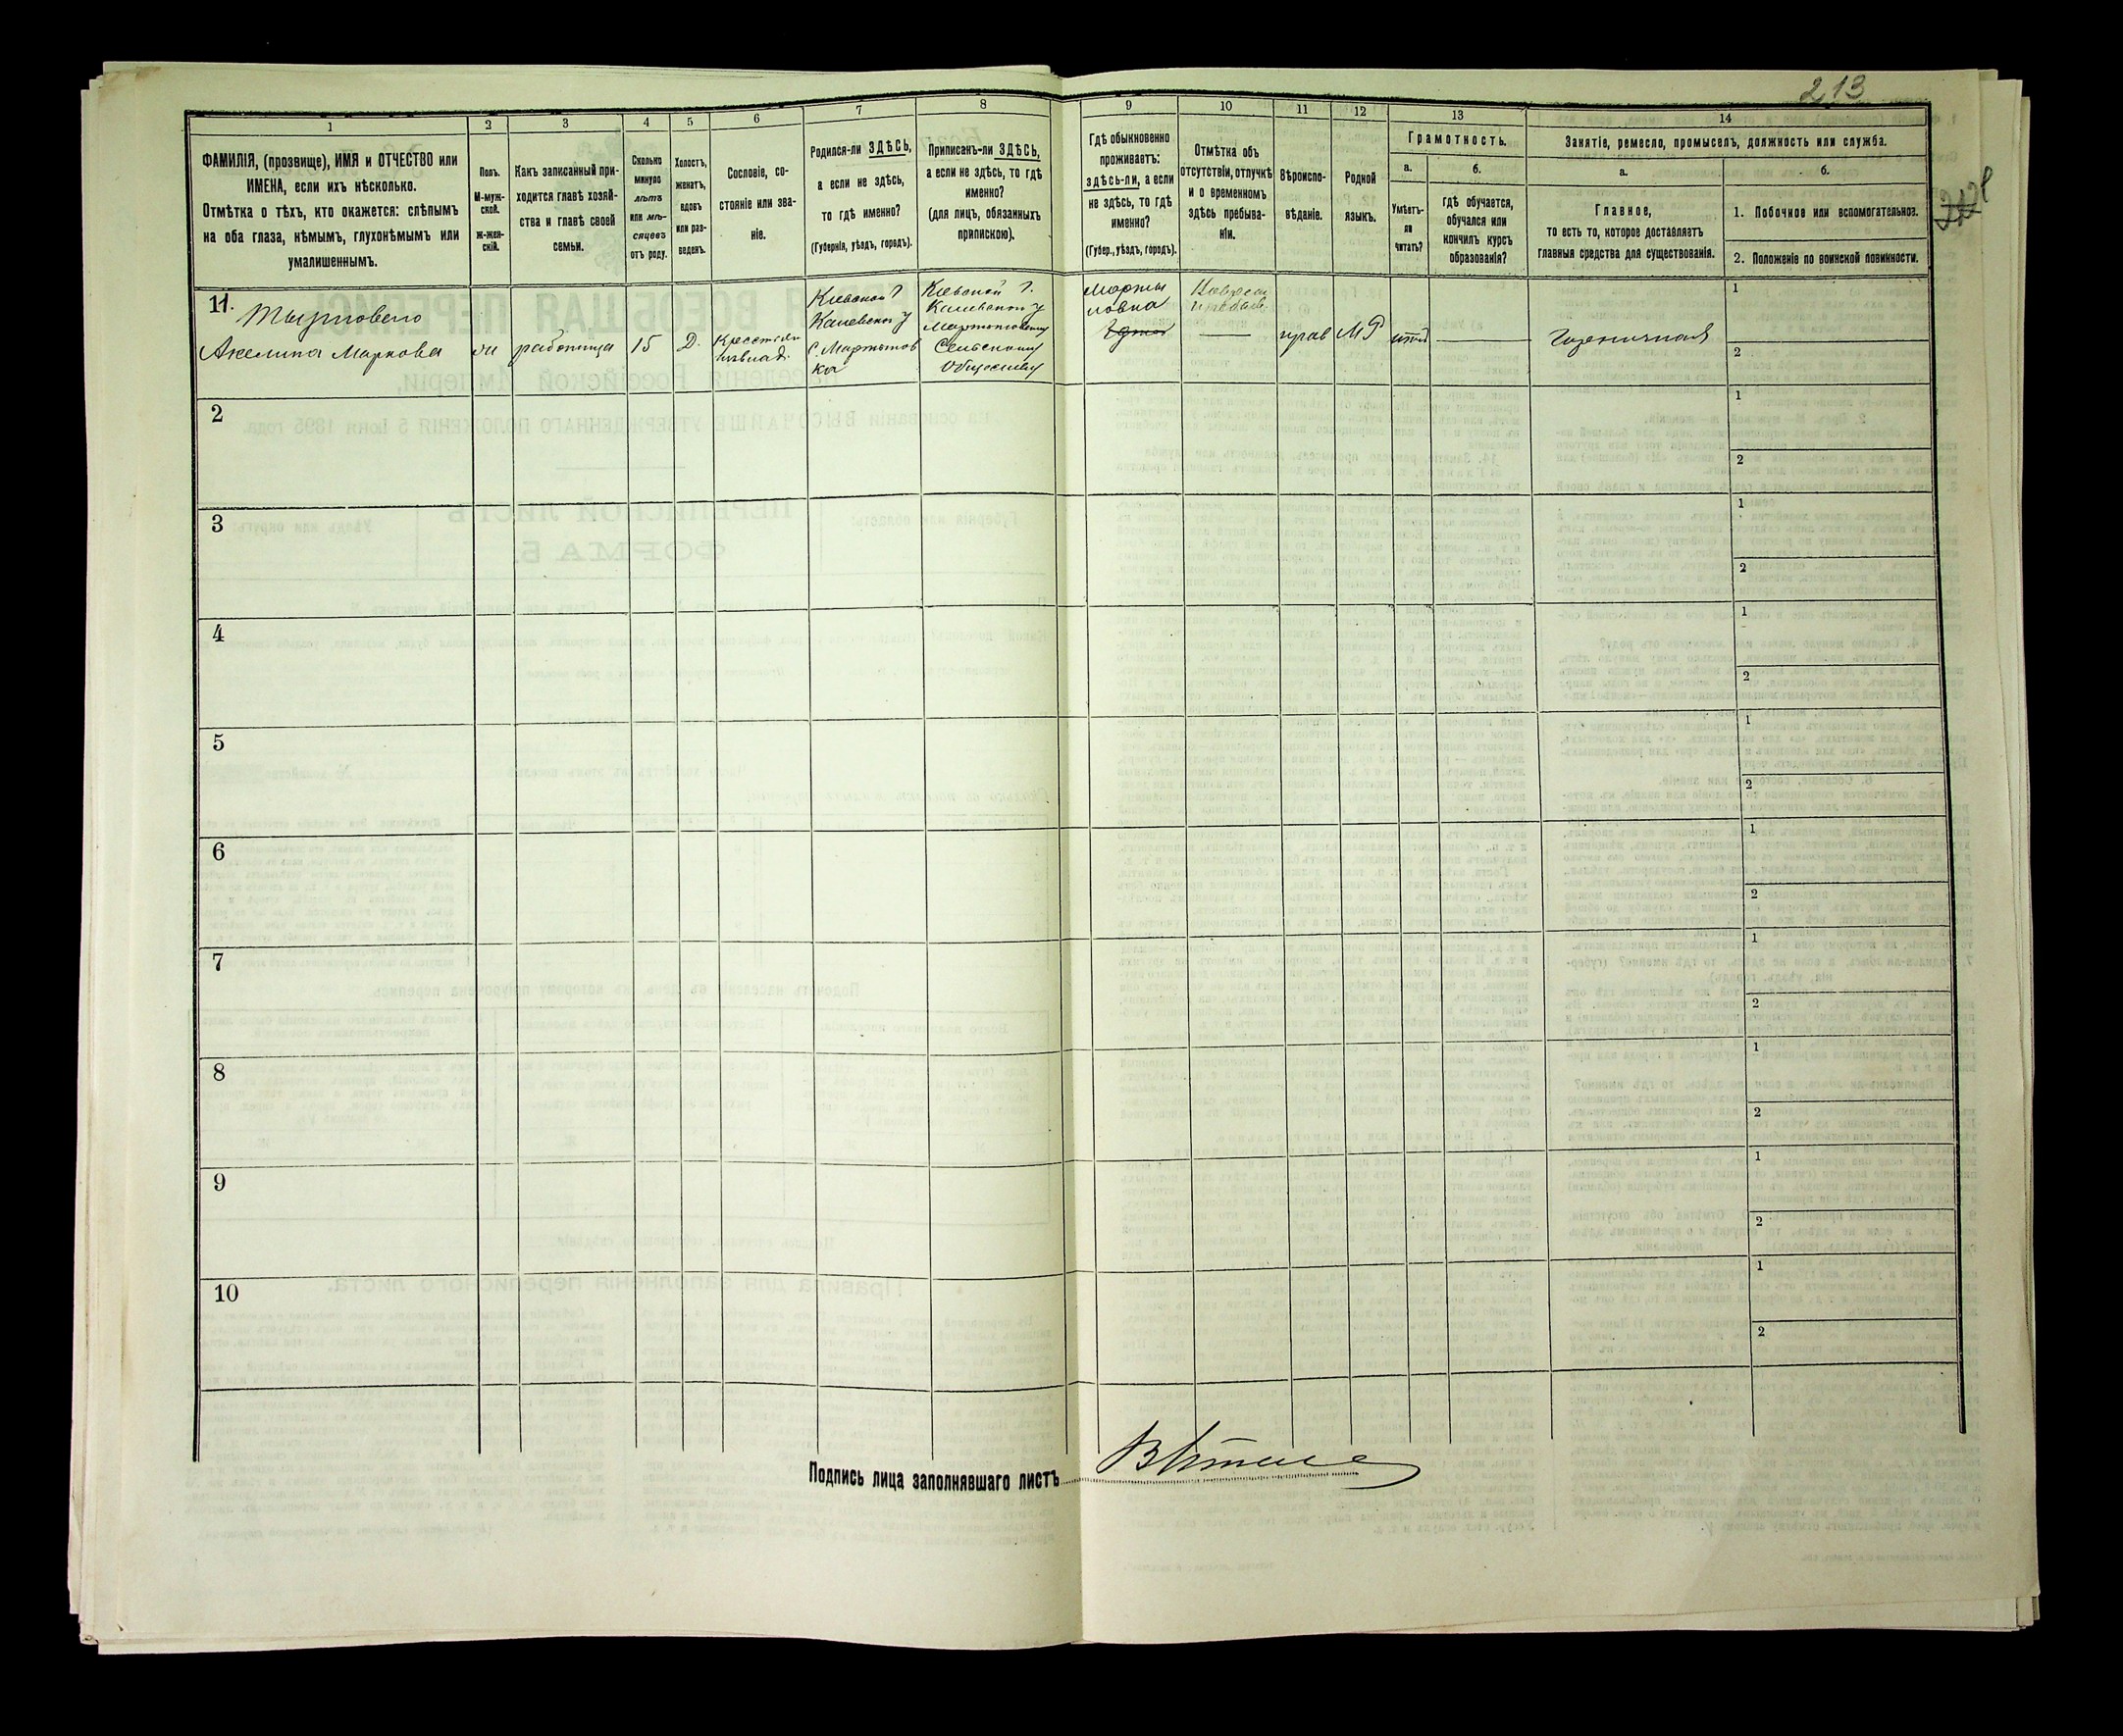 213
1
2
3
4
5
6
7
8
9
10
11
12
13
14
ФАМИЛІЯ, (прозвище), ИМЯ и ОТЧЕСТВО или
ИМЕНА, если ихъ нѣсколько.
Отмѣтка о тѣхъ, кто окажется: слѣпымъ
на оба глаза, нѣмымъ, глухонѣмымъ или
умалишеннымъ.
Полъ.
М-муж-
ской.
ж-жен-
скій.
Какъ записанный при-
ходится главѣ хозяй-
ства и главѣ своей
семьи.
Сколько
минуло
лѣтъ
или мѣ-
сяцевъ
отъ роду.
Холостъ,
женатъ,
вдовъ
или раз-
веденъ.
Сословіе, со-
стояніе или зва-
ніе.
Родился-ли ЗДѢСЬ,
а если не здѣсь,
то гдѣ именно?
(Губернія, уѣздъ, городъ).
Приписанъ-ли ЗДѢСЬ,
а если не здѣсь, то гдѣ
именно?
(для лицъ, обязанныхъ
припискою).
Гдѣ обыкновенно
проживаетъ:
здѣсь-ли, а если
не здѣсь, то гдѣ
именно?
(Губер., уѣздъ, городъ).
Отмѣтка объ
отсутствіи, отлучкѣ
и о временномъ
здѣсь пребыва-
ніи.
Вѣроиспо-
вѣданіе.
Родной
языкъ.
Грамотность.
а.
Умѣетъ-
ли
читать?
б.
гдѣ обучается,
обучался или
кончилъ курсъ
образованія?
Занятіе, ремесло, промыселъ, должность или служба.
а.
Главное,
то есть то, которое доставляетъ
главныя средства для существованія.
б.
1. Побочное или вспомогательное.
2. Положеніе по воинской повинности.
11.
Акелина Маркова
работница
15
Д.
Кіевской Г
Каневскаго У
С. Мартынов
ка
Кіевской Г.
Каневскаго У
Мартыновскому
Сельскому
Обществу
Марты
новка
прав
МР
1
2
2
1
2
3
1
2
4
1
2
5
1
2
6
1
2
7
1
2
8
1
2
9
1
2
10
1
2
Подпись лица заполнявшаго листъ